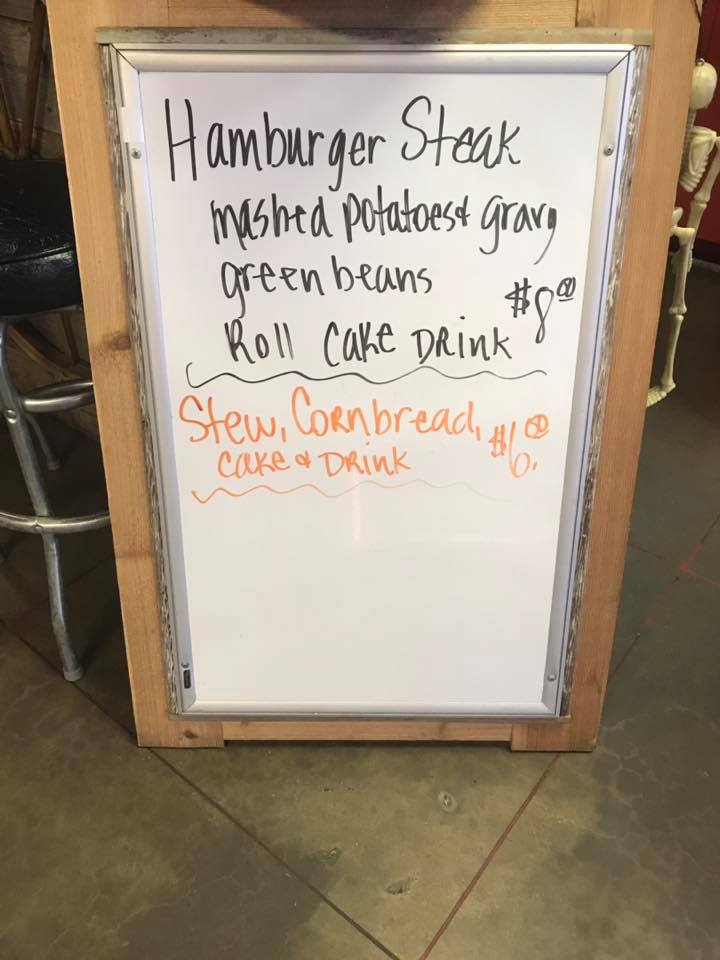 Hamburger Steak
mashed potatoes & gravy
green beans
Roll Cake Drink $8.00
Stew, Cornbread, $6.00
Cake & Drink